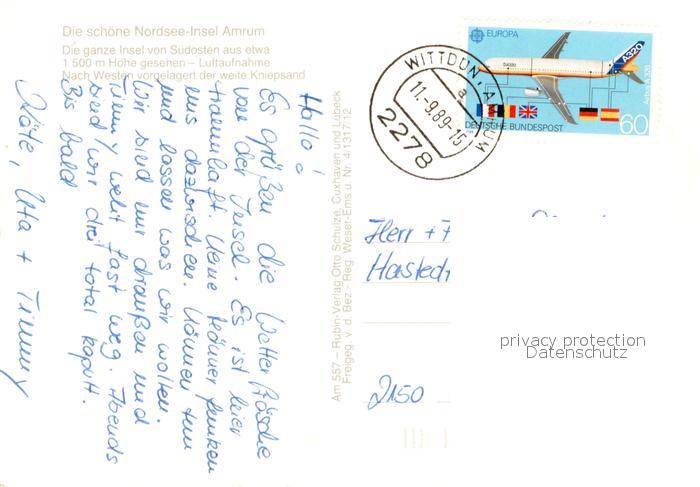 Die schöne Nordsee-Insel Amrum
Die ganze Insel von Südosten aus etwa
1 500 m Höhe gesehen – Luftaufnahme
Nach Westen vorgelagert der weite Kniepsand
Hallo!
Es grüßen die
von der Insel. Es ist hier
traumhaft. Keine Männer funken
uns dazwischen. Können tun
und lassen was wir wollen.
Wir sind nur draußen und
Timmy weht fast weg. Abends
sind wir drei total kaputt.
Bis bald
Käte, Uta + Timmy
Am 557 – Rubin-Verlag Otto Schulze, Cuxhaven und Lübeck
Freigeg. v. d. Bez.- Reg. Weser-Ems u. Nr. 4/1317/12
EUROPA
A320
Airbus A320
DEUTSCHE BUNDESPOST
60
WITTDÜN, AMRUM
a
11.-9.89-15
2278
Herr + F
Hastedt
2150
privacy protection
Datenschutz